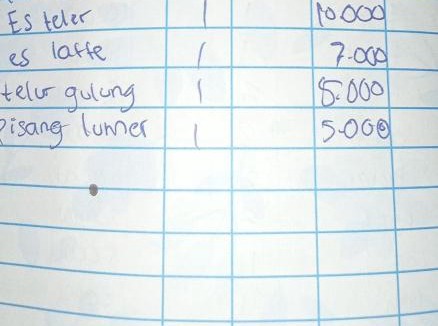 Es teler 1 10.000
es latte 1 7.000
telur gulung 1 5.000
Pisang lumer 1 5.000